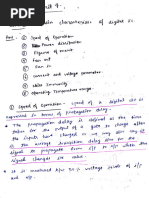 Unit 4.
main characteristics of digital IC.
Ans. ① Speed of operation
② Power dissipation
③ Figure of merit
④ Fan out
⑤ Fan in
⑥ current and voltage parameter
⑦ Noise immunity
⑧ Operating Temperature range.
① Speed of operation - speed of a digital ckt is
expressed in terms of propagation delay.
• The propagation delay is defined as the time
taken for the output of a gate to change after
the inputs have changed
is the average transition delay time for the
signal to propagate from i/p to o/p when the
signal changes its value.
• It is measured b/w 50% voltage points of i/p
and o/p